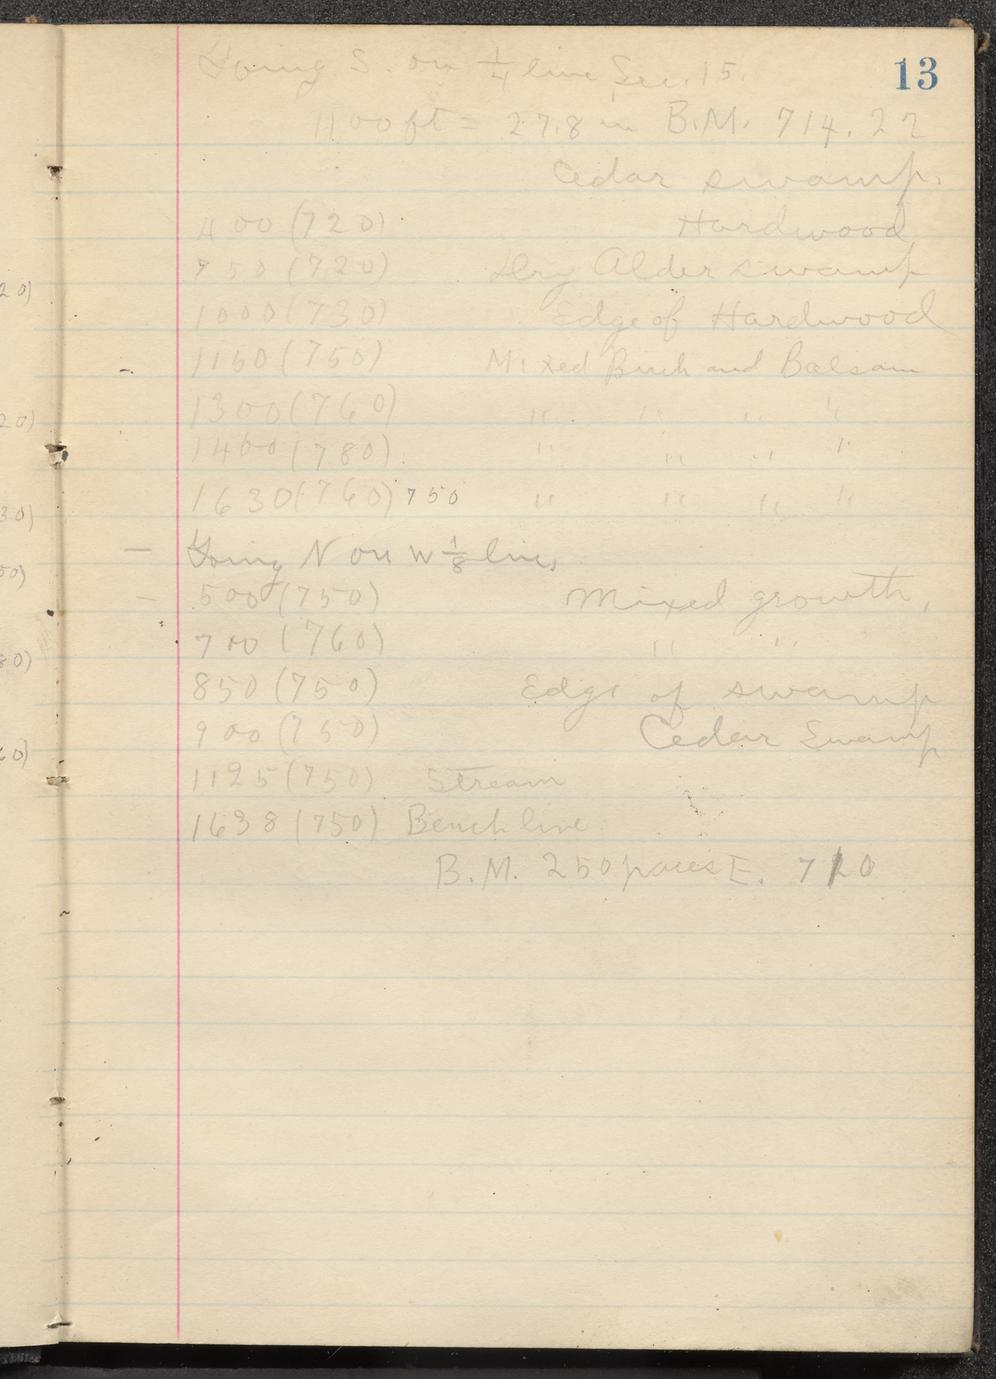 13
Going S. on 1/4 line Sec. 15.
1100 ft = 27.8 in B.M. 714.22
Cedar swamp.
400 (720) Hardwood
750 (720) Dry Alder swamp
1000 (730) Edge of Hardwood
1150 (750) Mixed Birch and Balsam
1300 (760) " " " "
1400 (780) " " " "
1630 (760) 750 " " " "
— Going N on W 1/8 line,
— 500 (750) Mixed growth,
700 (760) " "
850 (750) Edge of swamp
900 (750) Cedar Swamp
1125 (750) Stream
1638 (750) Bench line
B.M. 250 paces E. 710
20)
20)
30)
50)
80)
60)